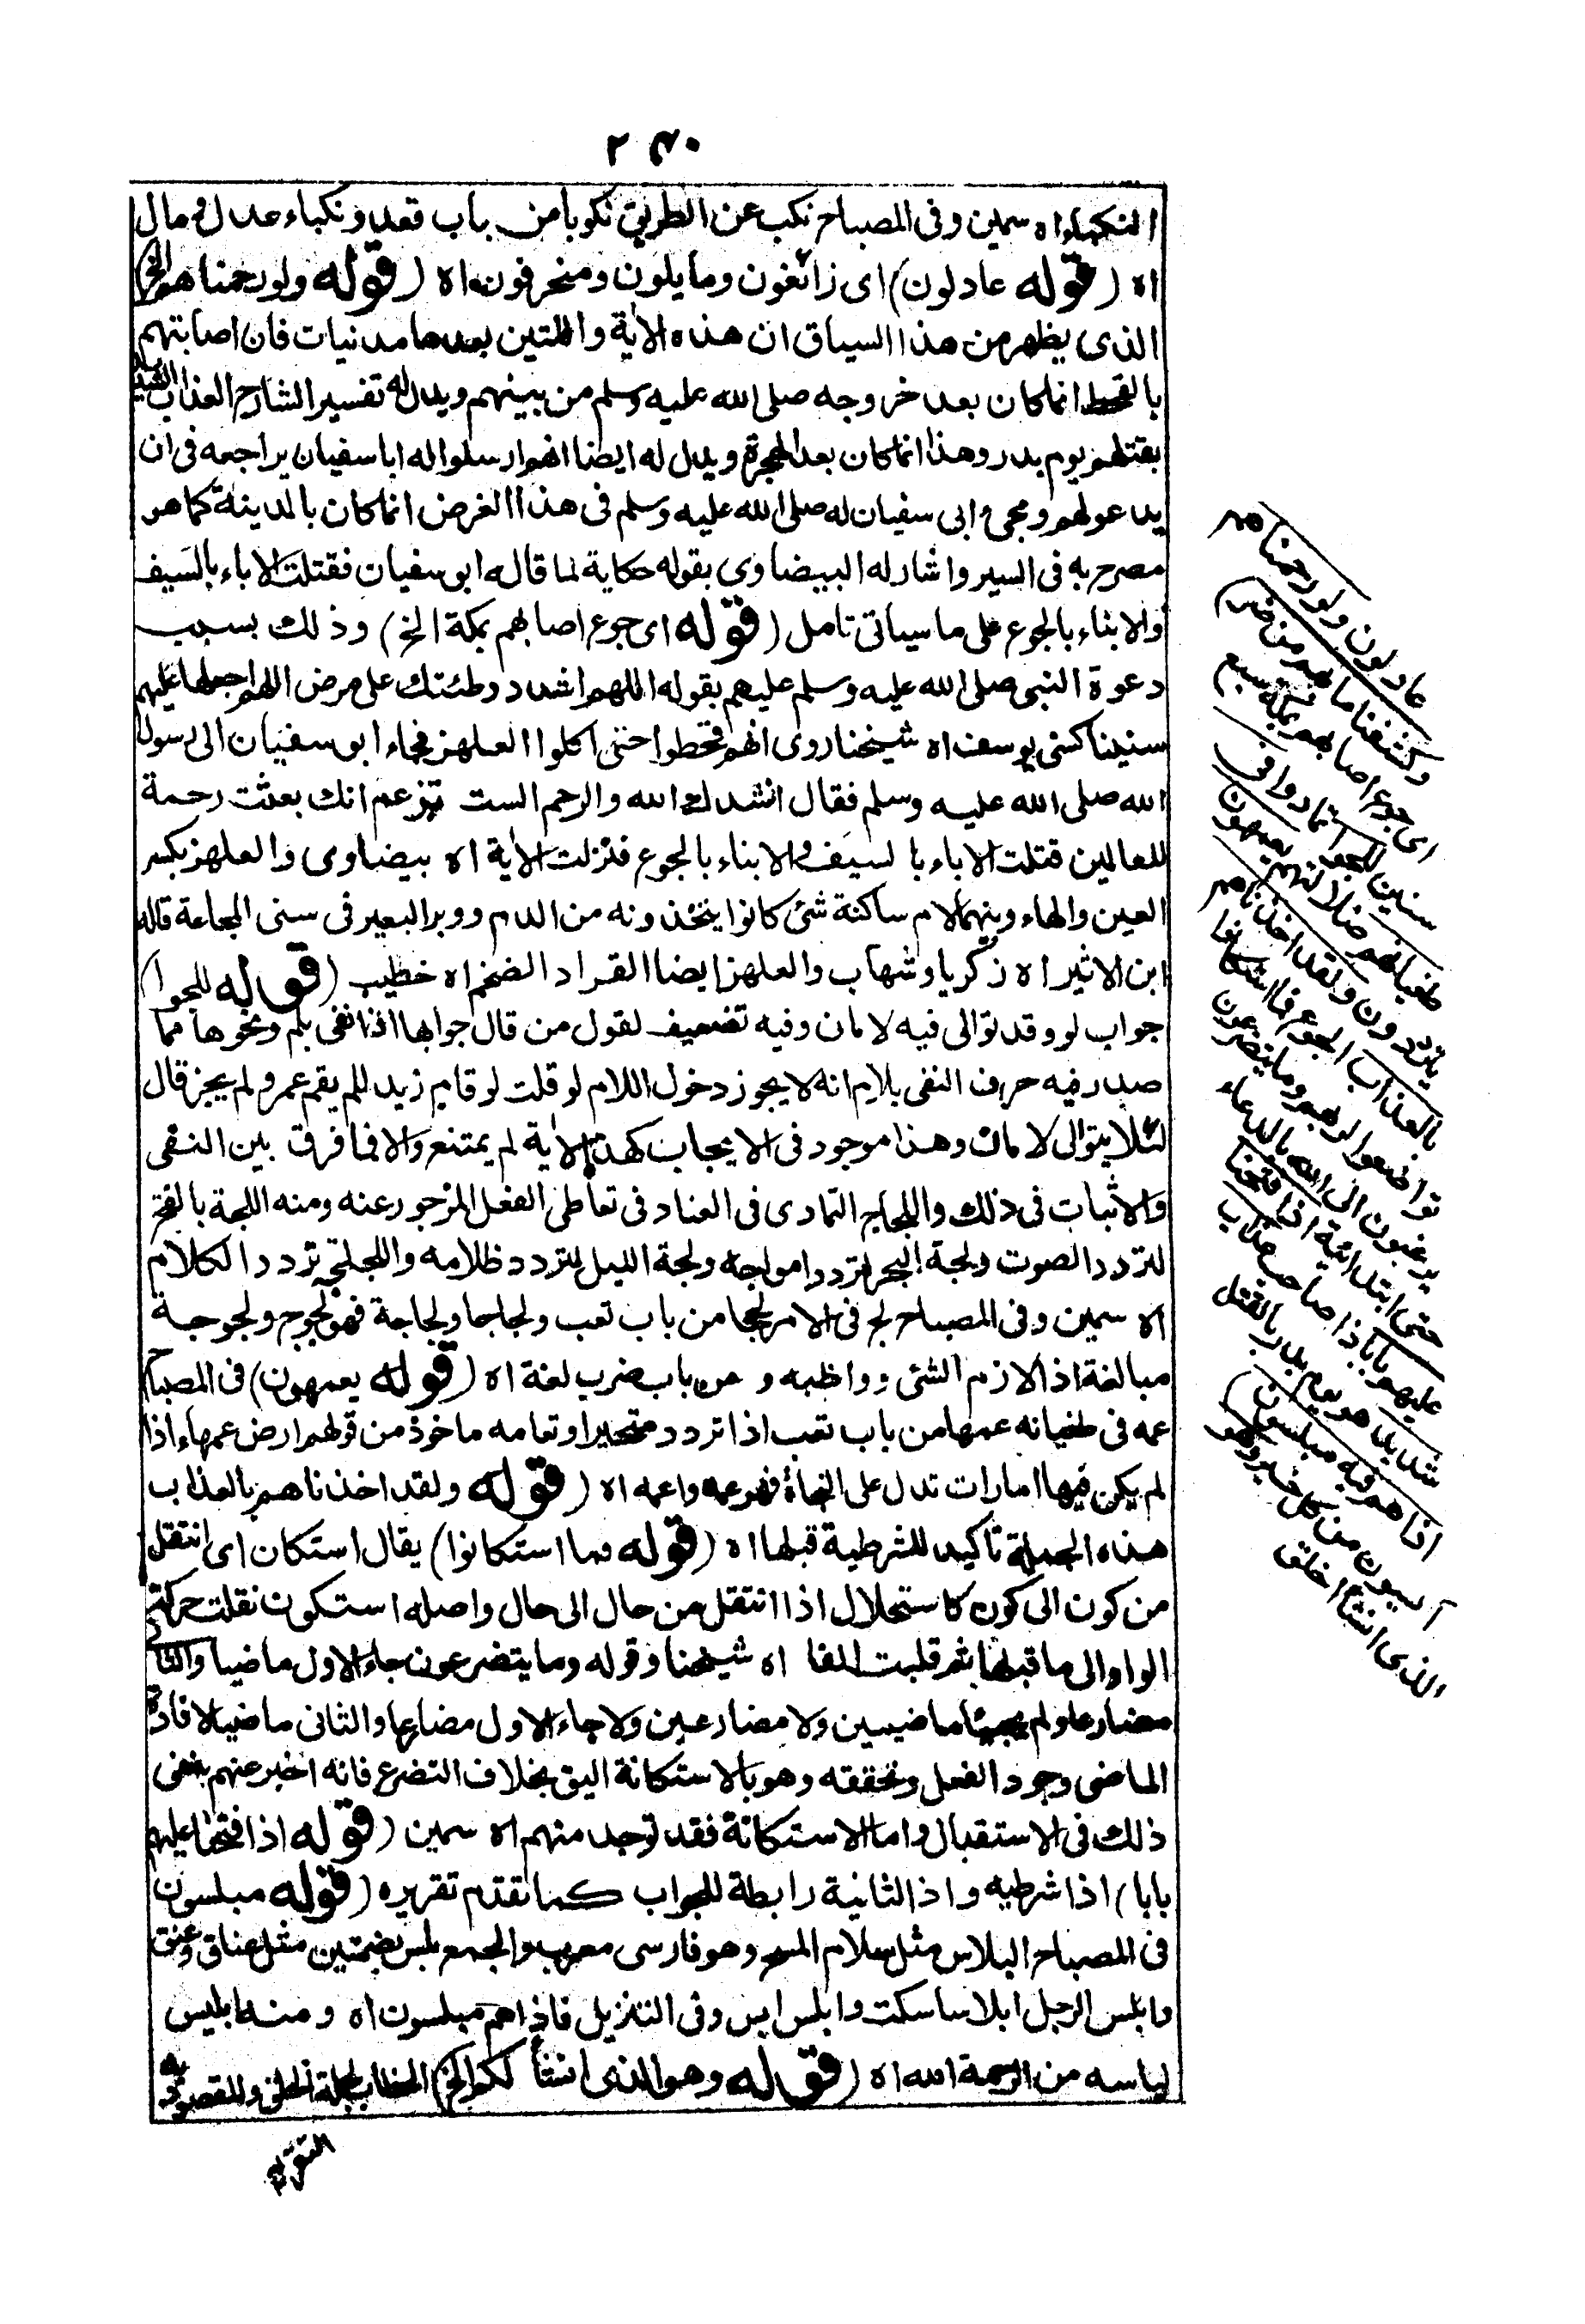 ٢٣٠
النكباء اه سمين وفى المصباح نكب عن الطريق نكوبا من باب قعد ونكباء عدل ومال
اه (قوله عادلون) اى زائغون ومايلون ومنحرفون اه (قوله ولورحمناهم الخ)
الذى يظهر من هذا السياق ان هذه الاية واللتين بعدها مدنيات فان اصابتهم
بالقحط انما كان بعد خروجه صلى الله عليه وسلم من بينهم ويدل له تفسير الشارح العذاب الشديد
بقتلهم يوم بدر وهذا انما كان بعد الهجرة ويدل له ايضا انهم ارسلوا له ابا سفيان يراجعه فى ان
يدعو لهم ومجئ ابى سفيان له صلى الله عليه وسلم فى هذا الغرض انما كان بالمدينة كما هو
مصرح به فى السير واشار له البيضاوى بقوله حكاية لما قاله ابو سفيان فقتلت الاباء بالسيف
والابناء بالجوع على ما سياتى تامل (قوله اى جوع اصابهم بمكة الخ) وذلك بسبب
دعوة النبى صلى الله عليه وسلم عليهم بقوله اللهم اشدد وطئتك على مرض اللهم اجعلها عليهم
سنينا كسنى يوسف اه شيخنا روى انهم قحطوا حتى اكلوا العلهز فجاء ابو سفيان الى رسول
الله صلى الله عليه وسلم فقال انشدك الله والرحم الست تزعم انك بعثت رحمة
للعالمين قتلت الاباء بالسيف والابناء بالجوع فنزلت الاية اه بيضاوى والعلهز بكسر
العين والهاء وبينهما لام ساكنة شئ كانوا يتخذونه من الدم ووبر البعير فى سنى المجاعة قاله
ابن الاثير اه زكريا وشهاب والعلهز ايضا القراد الضخم اه خطيب (قوله للجوا)
جواب لو وقد توالى فيه لامان وفيه تضعيف لقول من قال جوابها اذا نفى بلم ونحوها مما
صدر فيه حرف النفى بلام انه لا يجوز دخول اللام لو قلت لو قام زيد للم يقم عمرو لم يجز قال
لئلا يتوالى لامان وهذا موجود فى الايجاب كهذه الاية لم يمتنع والا فما فرق بين النفى
والاثبات فى ذلك واللجاج التمادى فى العناد فى تعاطى الفعل المزجور عنه ومنه اللجة بالفتح
لتردد الصوت ولجة البحر لتردد امواجه ولجة الليل لتردد ظلامه واللجلجة تردد الكلام
اه سمين وفى المصباح لج فى الامر لججا من باب تعب ولجاجا ولجاجة فهو لجوج ولجوجة
مبالغة اذا لازم الشئ وواظبه و من باب ضرب لغة اه (قوله يعمهون) فى المصباح
عمه فى طغيانه عمها من باب تعب اذا تردد متحيرا وتعامه ماخوذ من قولهم ارض عمهاء اذا
لم يكن فيها امارات تدل على النجاة فهو عمه واعمه اه (قوله ولقد اخذناهم بالعذاب
هذه الجملة تاكيد للشرطية قبلها اه (قوله فما استكانوا) يقال استكان اى انتقل
من كون الى كون كاستحلال اذا انتقل من حال الى حال واصله استكون نقلت حركة
الواو الى ما قبلها ثم قلبت الفا اه شيخنا وقوله وما يتضرعون جاء الاول ماضيا والثانى
مضارعا ولم يجيئا ماضيين ولا مضارعين ولا جاء الاول مضارعا والثانى ماضيا لافادة
الماضى وجود الفعل وتحققه وهو بالاستكانة اليق بخلاف التضرع فانه اخبر عنهم بنفى
ذلك فى الاستقبال واما الاستكانة فقد توجد منهم اه سمين (قوله اذا فتحنا عليهم
بابا) اذا شرطيه واذا الثانية رابطة للجواب كما تقدم تقريره (قوله مبلسون
فى المصباح البلاس مثل سلام المسح وهو فارسى معرب والجمع بلس بضمتين مثل عناق وعنق
وابلس الرجل ابلاسا سكت وابلس ايس وفى التنزيل فاذا هم مبلسون اه ومنه ابليس
لياسه من الرحمة الله اه (قوله وهو الذى انشأ لكم الخ) الخطاب لجملة الخلق والمقصود به
التقريع
عادلون ولو رحمناهم
وكشفنا ما بهم من ضر
اى جوع اصابهم بمكة سبع
سنين للجوا تمادوا فى
طغيانهم ضلالتهم يعمهون
يترددون ولقد اخذناهم
بالعذاب الجوع فما استكانوا
تواضعوا لربهم وما يتضرعون
يرغبون الى الله بالدعاء
حتى ابتدائية اذا فتحنا
عليهم بابا ذا صاحب عذاب
شديد هو يوم بدر بالقتل
اذا هم فيه مبلسون
آيسون من كل خير وهو
الذى انشأ خلق